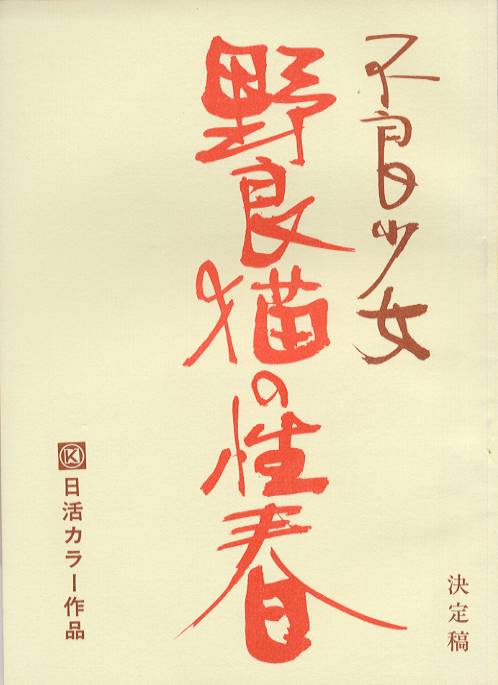 不良少女
野良猫の性春
決定稿
K
日活カラー作品